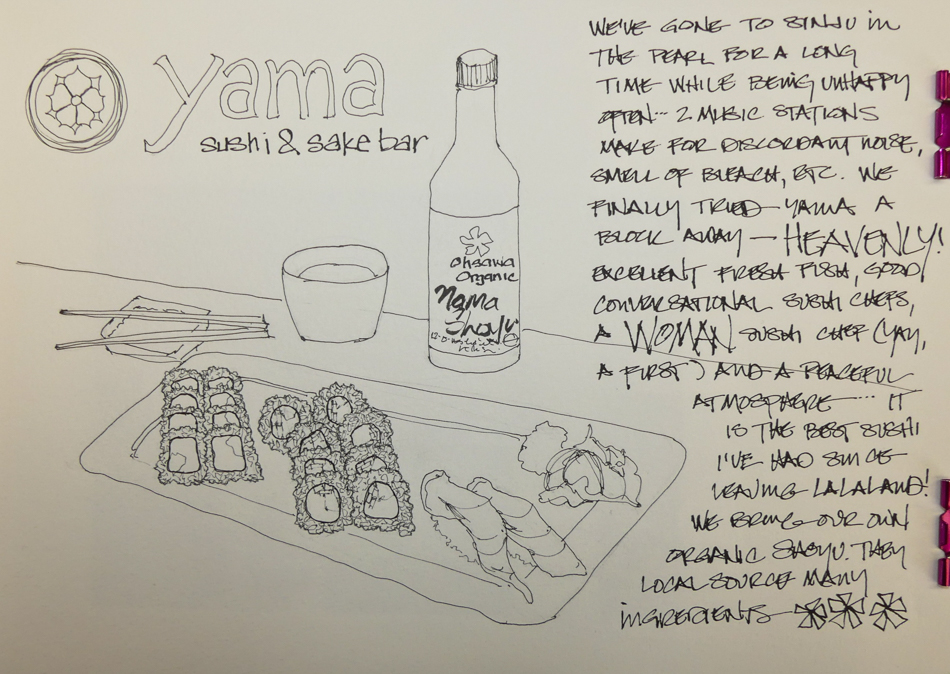 yama
sushi & sake bar
Ohsawa
Organic
Nama
Shoyu
WE'VE GONE TO SINJU in
THE PEARL FOR A LONG
TIME WHILE BEING UNHAPPY
OFTEN... 2 MUSIC STATIONS
MAKE FOR DISCORDANT NOISE,
SMELL OF BLEACH, ETC. WE
FINALLY TRIED YAMA A
BLOCK AWAY — HEAVENLY!
EXCELLENT FRESH FISH, GOOD
CONVERSATIONAL SUSHI CHEFS,
A WOMAN SUSHI CHEF (YAY,
A FIRST) AND A PEACEFUL
ATMOSPHERE ... IT
IS THE BEST SUSHI
I'VE HAD SINCE
LEAVING LALALAND!
WE BRING OUR OWN
ORGANIC SHOYU. THEY
LOCAL SOURCE MANY
INGREDIENTS